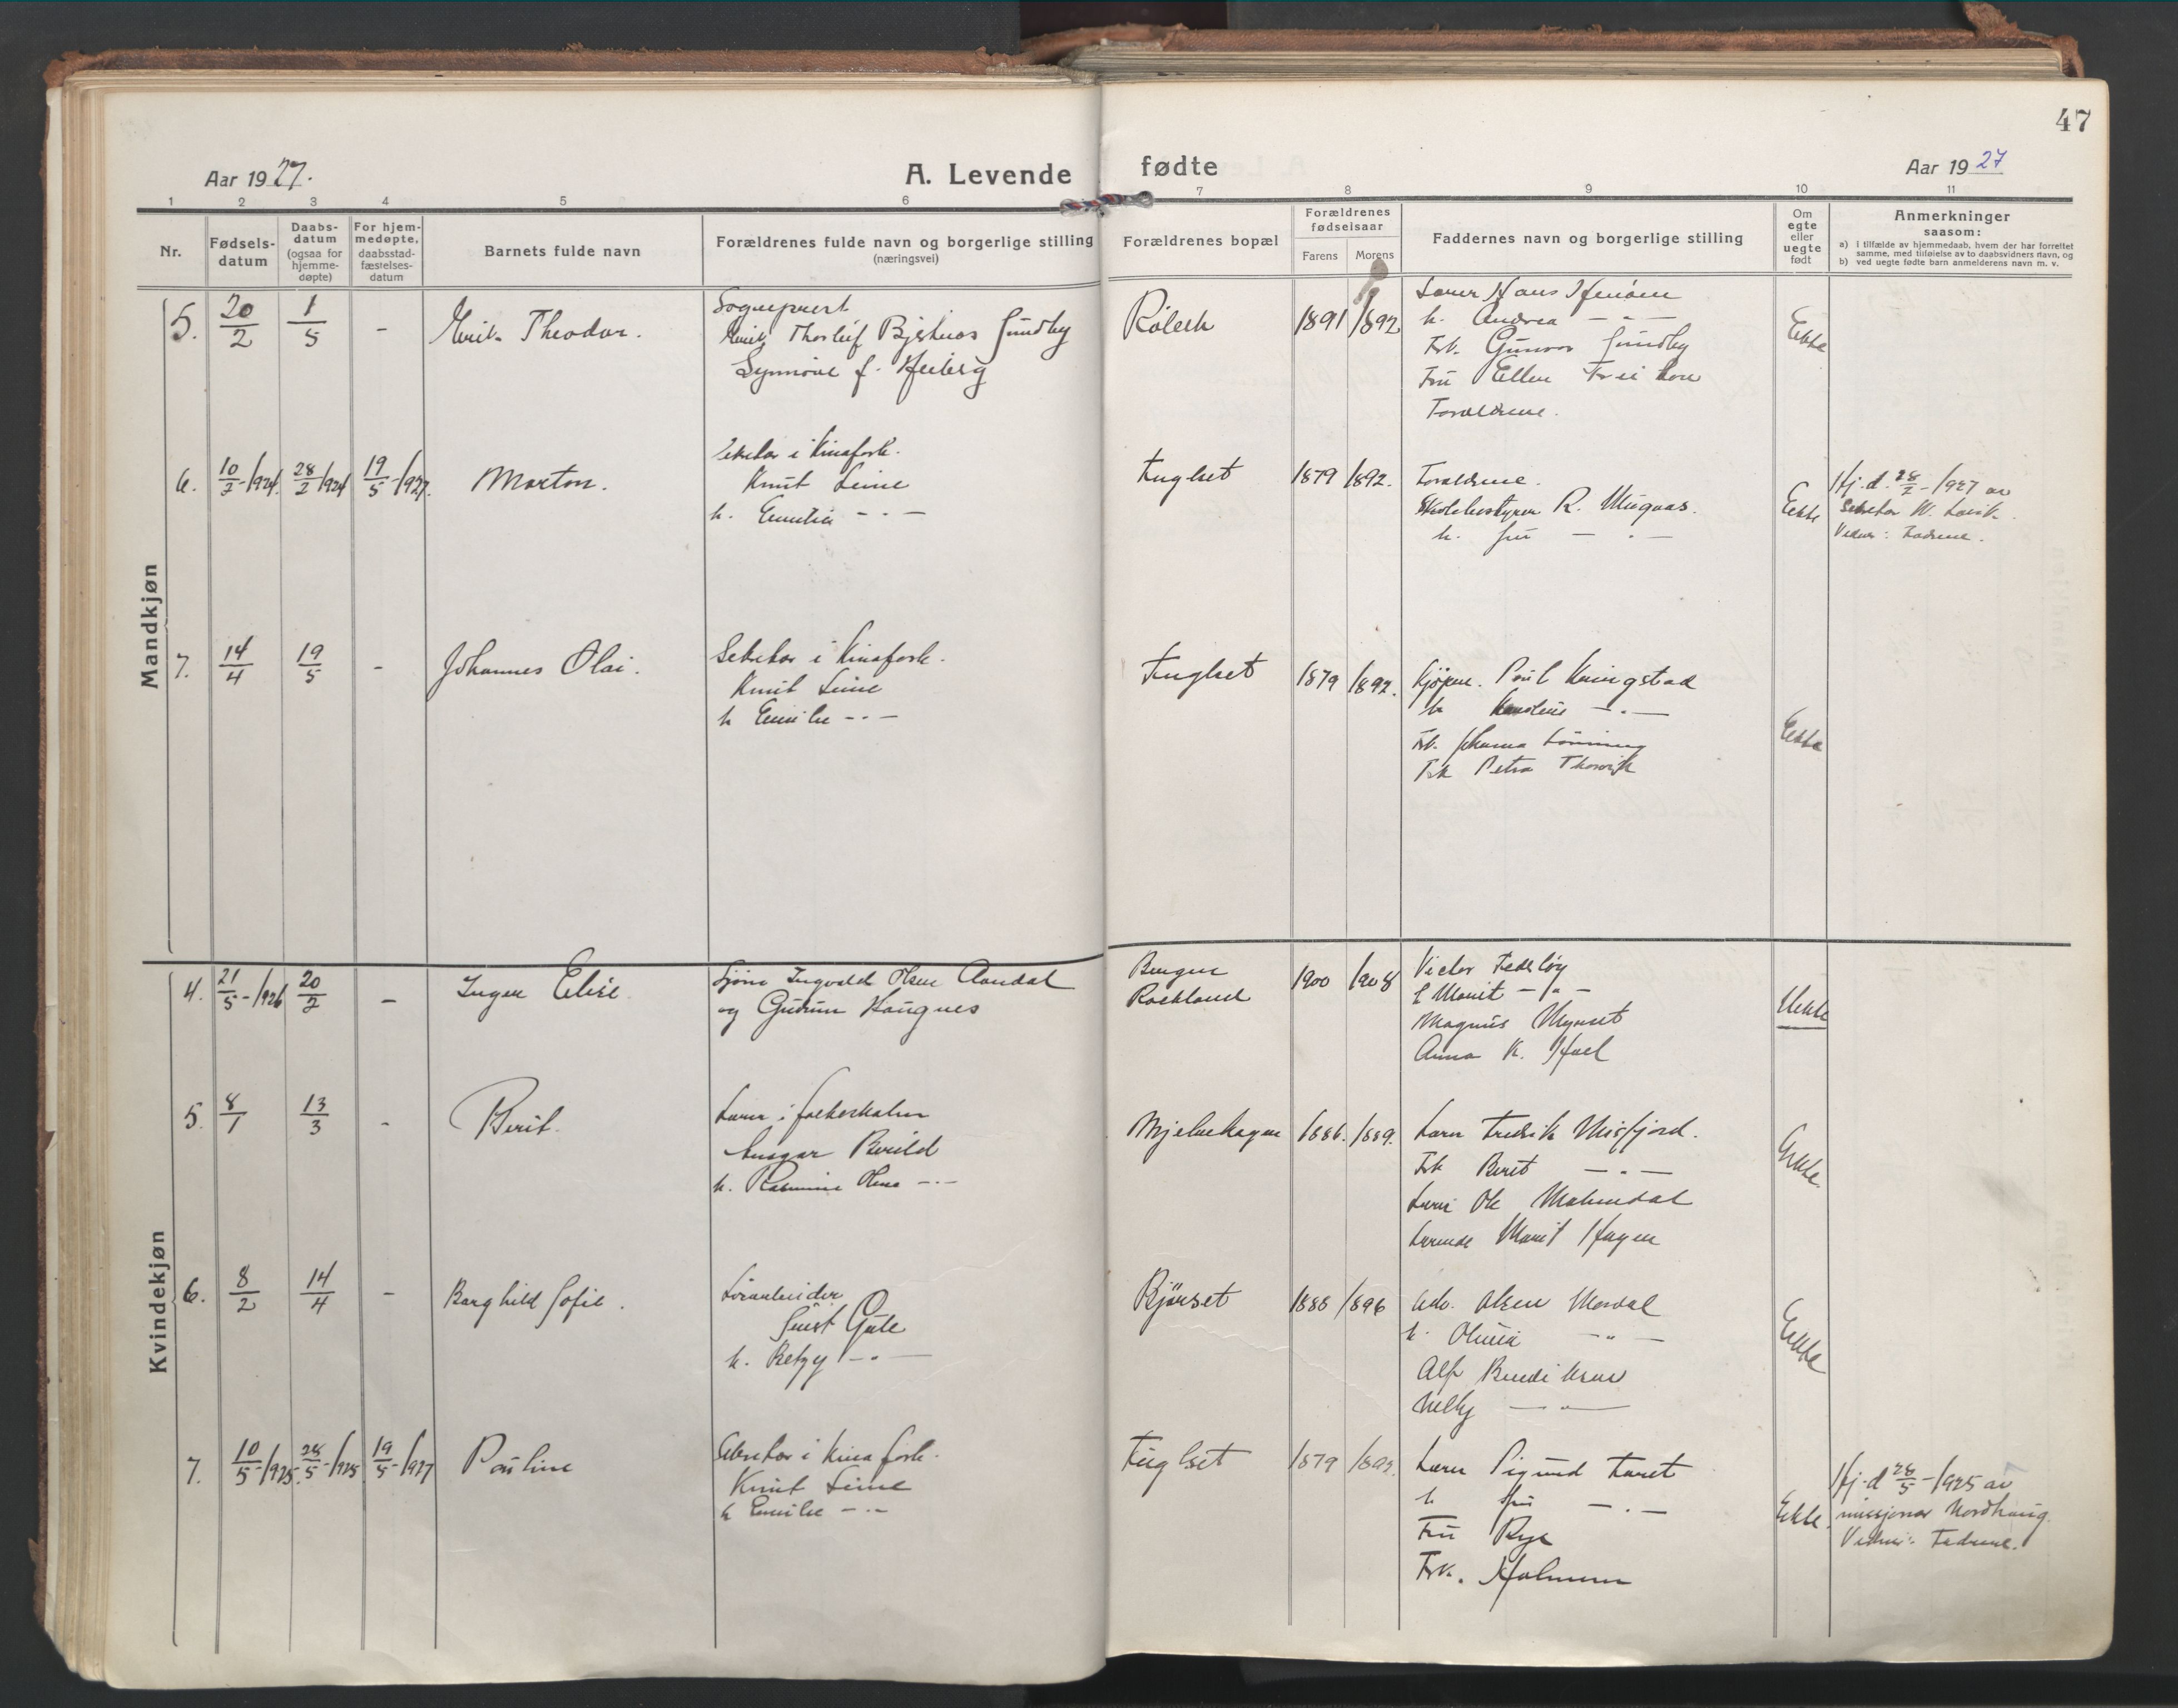 47
Aar 1927.
A. Levende fødte
Aar 1927
1 2 3 4 5 6 7 8 9 10 11
Nr.
Fødsels-
datum
Daabs-
datum
(ogsaa for
hjemme-
døpte)
For hjem-
medøpte,
daabsstad-
fæstelses-
datum
Barnets fulde navn
Forældrenes fulde navn og borgerlige stilling
(næringsvei)
Forældrenes bopæl
Forældrenes
fødselsaar
Farens Morens
Faddernes navn og borgerlige stilling
Om
egte
eller
uegte
født
Anmerkninger
saasom:
a) i tilfælde av hjemmedaab, hvem der har forrettet
samme, med tilføielse av to daabsvidners navn, og
b) ved uegte fødte barn anmelderens navn m. v.
Mandkjøn
5. 20/2 1/5 - Theodor.
Sogneprest
Synnøve f. Heiberg
1891 1892
h. Andrea - " -
Frk. Gunvor
Fru Ellen
Forældrene.
Ekte
6. 10/2-1924. 28/2 1924 19/5-1927. Morton.
Sekretær i Kinafork.
Knut Leine
h. Emilie - " -
Fuglset 1879 1892.
Forældrene.
Skolebestyrer R.
h. fru - " -
Ekte
Hj.d. 28/2-1927 av
Sekretær
Vidner: Fadrene.
7. 14/4 19/5 - Johannes Olai.
Sekretær i Kinafork.
Knut Leine
h Emilie - " -
Fuglset 1879 1892.
Kjøpm. Paul Kringstad
h - " -
Frk. Johanna Lønning
Frk Petra Thorvik
Ekte
Kvindekjøn
4. 21/5-1926 20/2 - Inger Elise
Sjøm Ingvald Olsen Aandal
og Gudrun Haugnes
Bergen
Rockland
1900 1908
Victor
Marit - " -
Magnus Mynset
Anna K. Hoel
Uekte
5. 8/1 13/3 - Berit.
Lærer i folkeskolen
Ansgar Berild
h. Rasmine Olene - " -
Mjelvehagen 1886. 1889.
Lærer Fredrik Misfjord.
Frk Berit - " -
Lærer Ole Malmedal
Lærerinde Marit Hagen
Ekte.
6. 8/2 14/4 - Borghild Sofie.
Løsarbeider
Gule
h. Betzy - " -
Bjørset 1888 1896
Olsen Mordal
h. Olivia - " -
Alf Bendiksen
Nelly - " -
Ekte
7. 10/5-1925. 28/5-1925 19/5-1927 Pauline
Sekretær i Kinafork.
Knut Leine
h Emilie - " -
Fuglset 1879 1892.
Lærer Sigurd
h fru - " -
Fru Rye
Frk. Holmen
Ekte.
Hj.d 28/5-1925 av
missjonær Nordhaug.
Vidner: Fadrene.